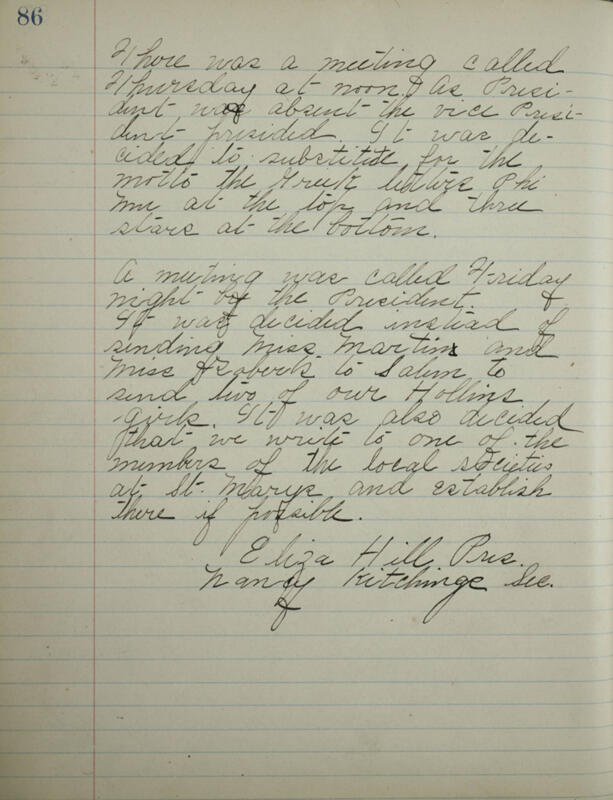 86
There was a meeting called
Thursday at noon. As Presi-
dent was absent the vice Presi-
dent presided. It was de-
cided to substitute for the
motto the Greek letters Phi
Mu at the top and three
stars at the bottom.
A meeting was called Friday
night by the President.
It was decided instead of
sending Miss Martin and
Miss Roberts to Salem to
send two of our Hollins
girls. It was also decided
that we write to one of the
members of the local societies
at St. Marys and establish
there if possible.
Eliza Hill Pres.
Nancy Kitchings Sec.